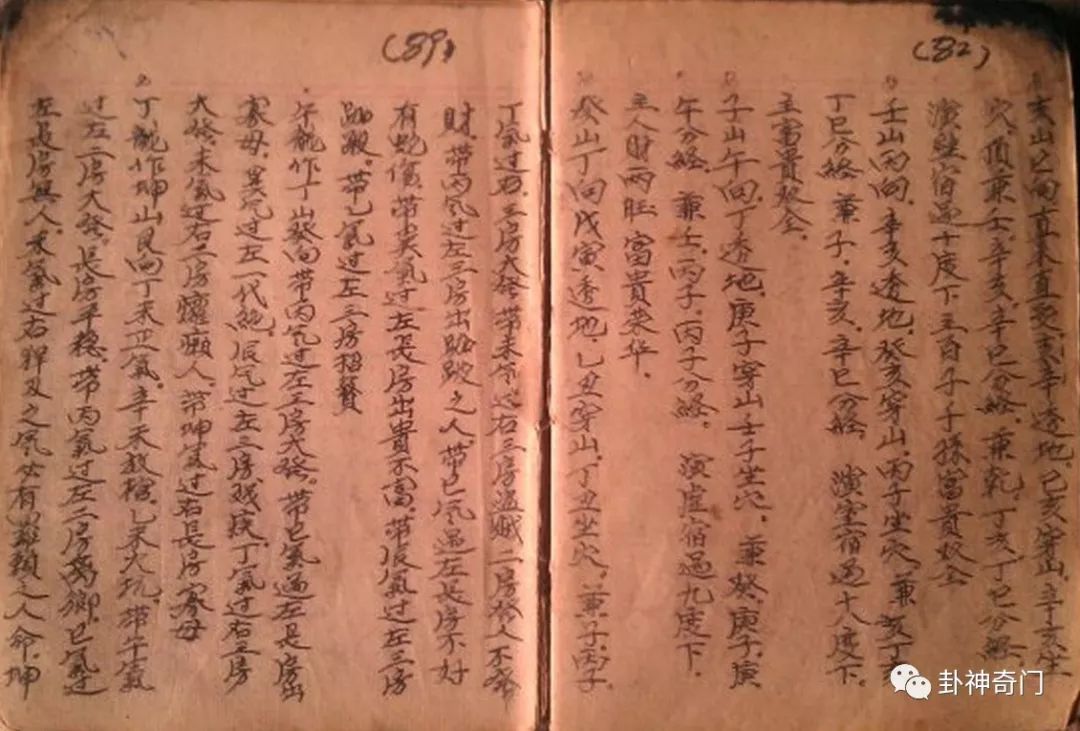 (82)
亥山巳向直来直受辛亥透地.己亥穿山.辛亥坐
穴.頂兼壬.辛亥.辛巳分経.兼乾.丁亥.丁巳分経.
演室宿過十度下主百子千孫富貴双全
壬山丙向.辛亥透地.癸亥穿山.丙子坐穴.兼亥丁亥
丁巳分経.兼子.辛亥.辛巳分経.演室宿過十八度下.
主富貴双全.
子山午向.丁透地.庚子穿山壬子坐穴.兼癸.庚子.庚
午分経.兼壬.丙子.丙子分経.演虚宿過九度下.
主人財两旺富貴荣华.
癸山丁向戊寅透地.乙丑穿山.丁丑坐穴.兼子.丙子.
(89)
丁氣过右三房大發.带未氣过右三房盗贼二房發人不發
財.带丙氣过左三房出跛之人.带巳氣過左長房不好
有.带巽氣过左長房出貴不富.带辰氣过左三房
跛.带乙氣过左三房招贅
午龍作丁山癸向带丙氣过左三房大發.带巳氣過左長房出
寡母.巽氣过左一代絶.辰氣过左三房残疾丁氣过右三房
大發.未氣过右二房人.带坤氣过右長房寡母
丁龍作坤山艮向丁未正氣.辛未放棺.乙未大坑.带午氣
过左二房大發.長房平稳.带丙氣过左二房离鄉.巳氣过
左長房無人.未氣过右之氣女有頸之人命.坤
卦神奇门